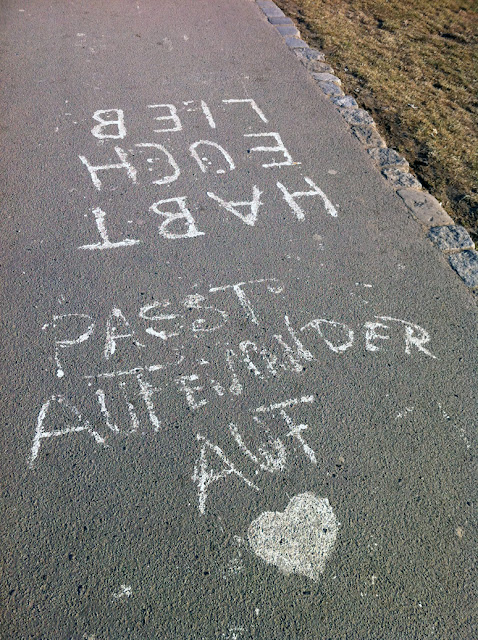 HABT
EUCH
LIEB
PASST
AUFEINANDER
AUF